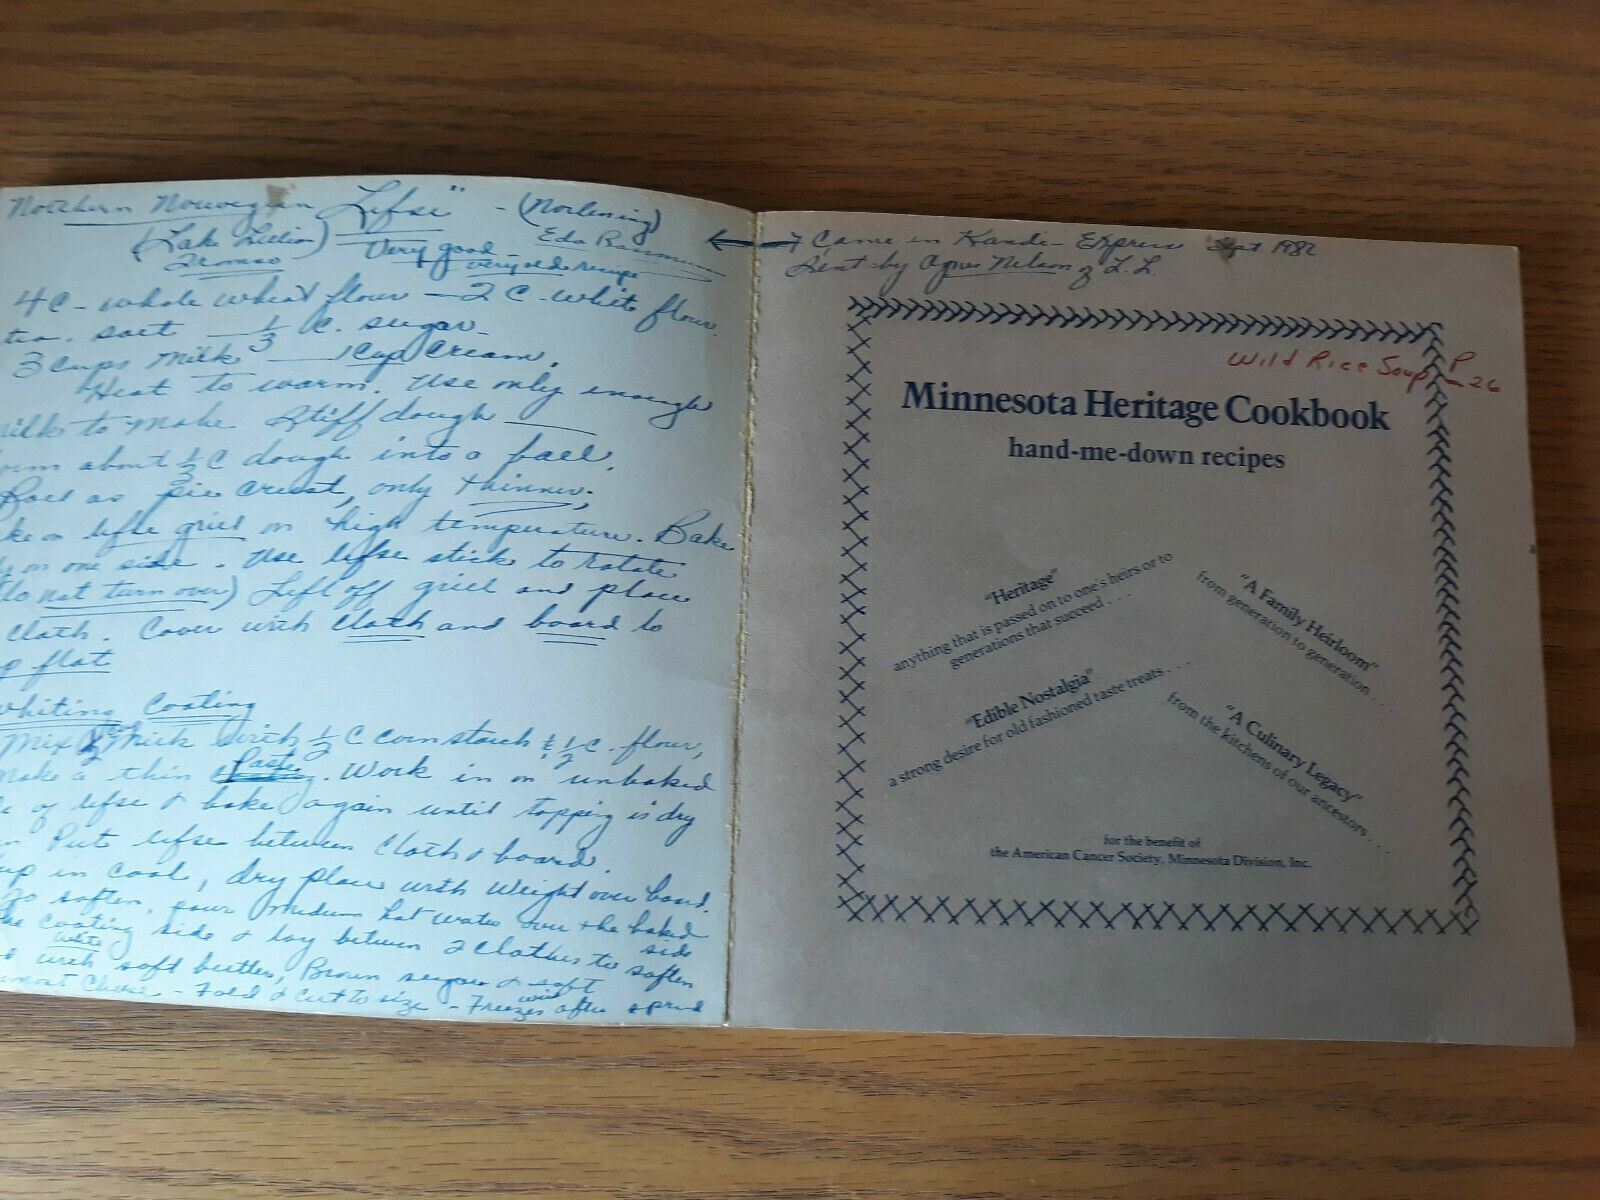 Northern Norwegian Lefse" - (Norlening)
(Lake Lillian) Very good - Eda Rasmussen
Tromso very old recipe
4 C - whole wheat flour - 2 C - white flour.
tea. salt 1/3 C. sugar -
3 cups milk 1 cup cream.
Heat to warm. Use only enough
milk to make stiff dough
about 1/3 C dough into a ball.
Roll as pie crust, only thinner,
on lefse grill on high temperature. Bake
on one side. Use lefse stick to rotate
(do not turn over) Lift off grill and place
cloth. Cover with cloth and board to
flat
Whiting Coating
Mix milk with 1/2 C corn starch & 1/2 C. flour,
make a thin paste. Work in on unbaked
of lefse & bake again until topping is dry
Put lefse between cloth & board.
up in cool, dry place with weight over board.
To soften, pour medium hot water over the baked side
coating side & lay between 2 white clothes to soften
with soft butter, Brown sugar & soft
cheese - Fold & cut to size - Freezes well after spread
Came in Kandi-Express Sept 1982
Sent by Agnes Nelson of L.L.
Wild Rice Soup P 26
Minnesota Heritage Cookbook
hand-me-down recipes
"Heritage"
anything that is passed on to one's heirs or to
generations that succeed . . .
"A Family Heirloom"
from generation to generation . . .
"Edible Nostalgia"
a strong desire for old fashioned taste treats . . .
"A Culinary Legacy"
from the kitchens of our ancestors . . .
for the benefit of
the American Cancer Society, Minnesota Division, Inc.